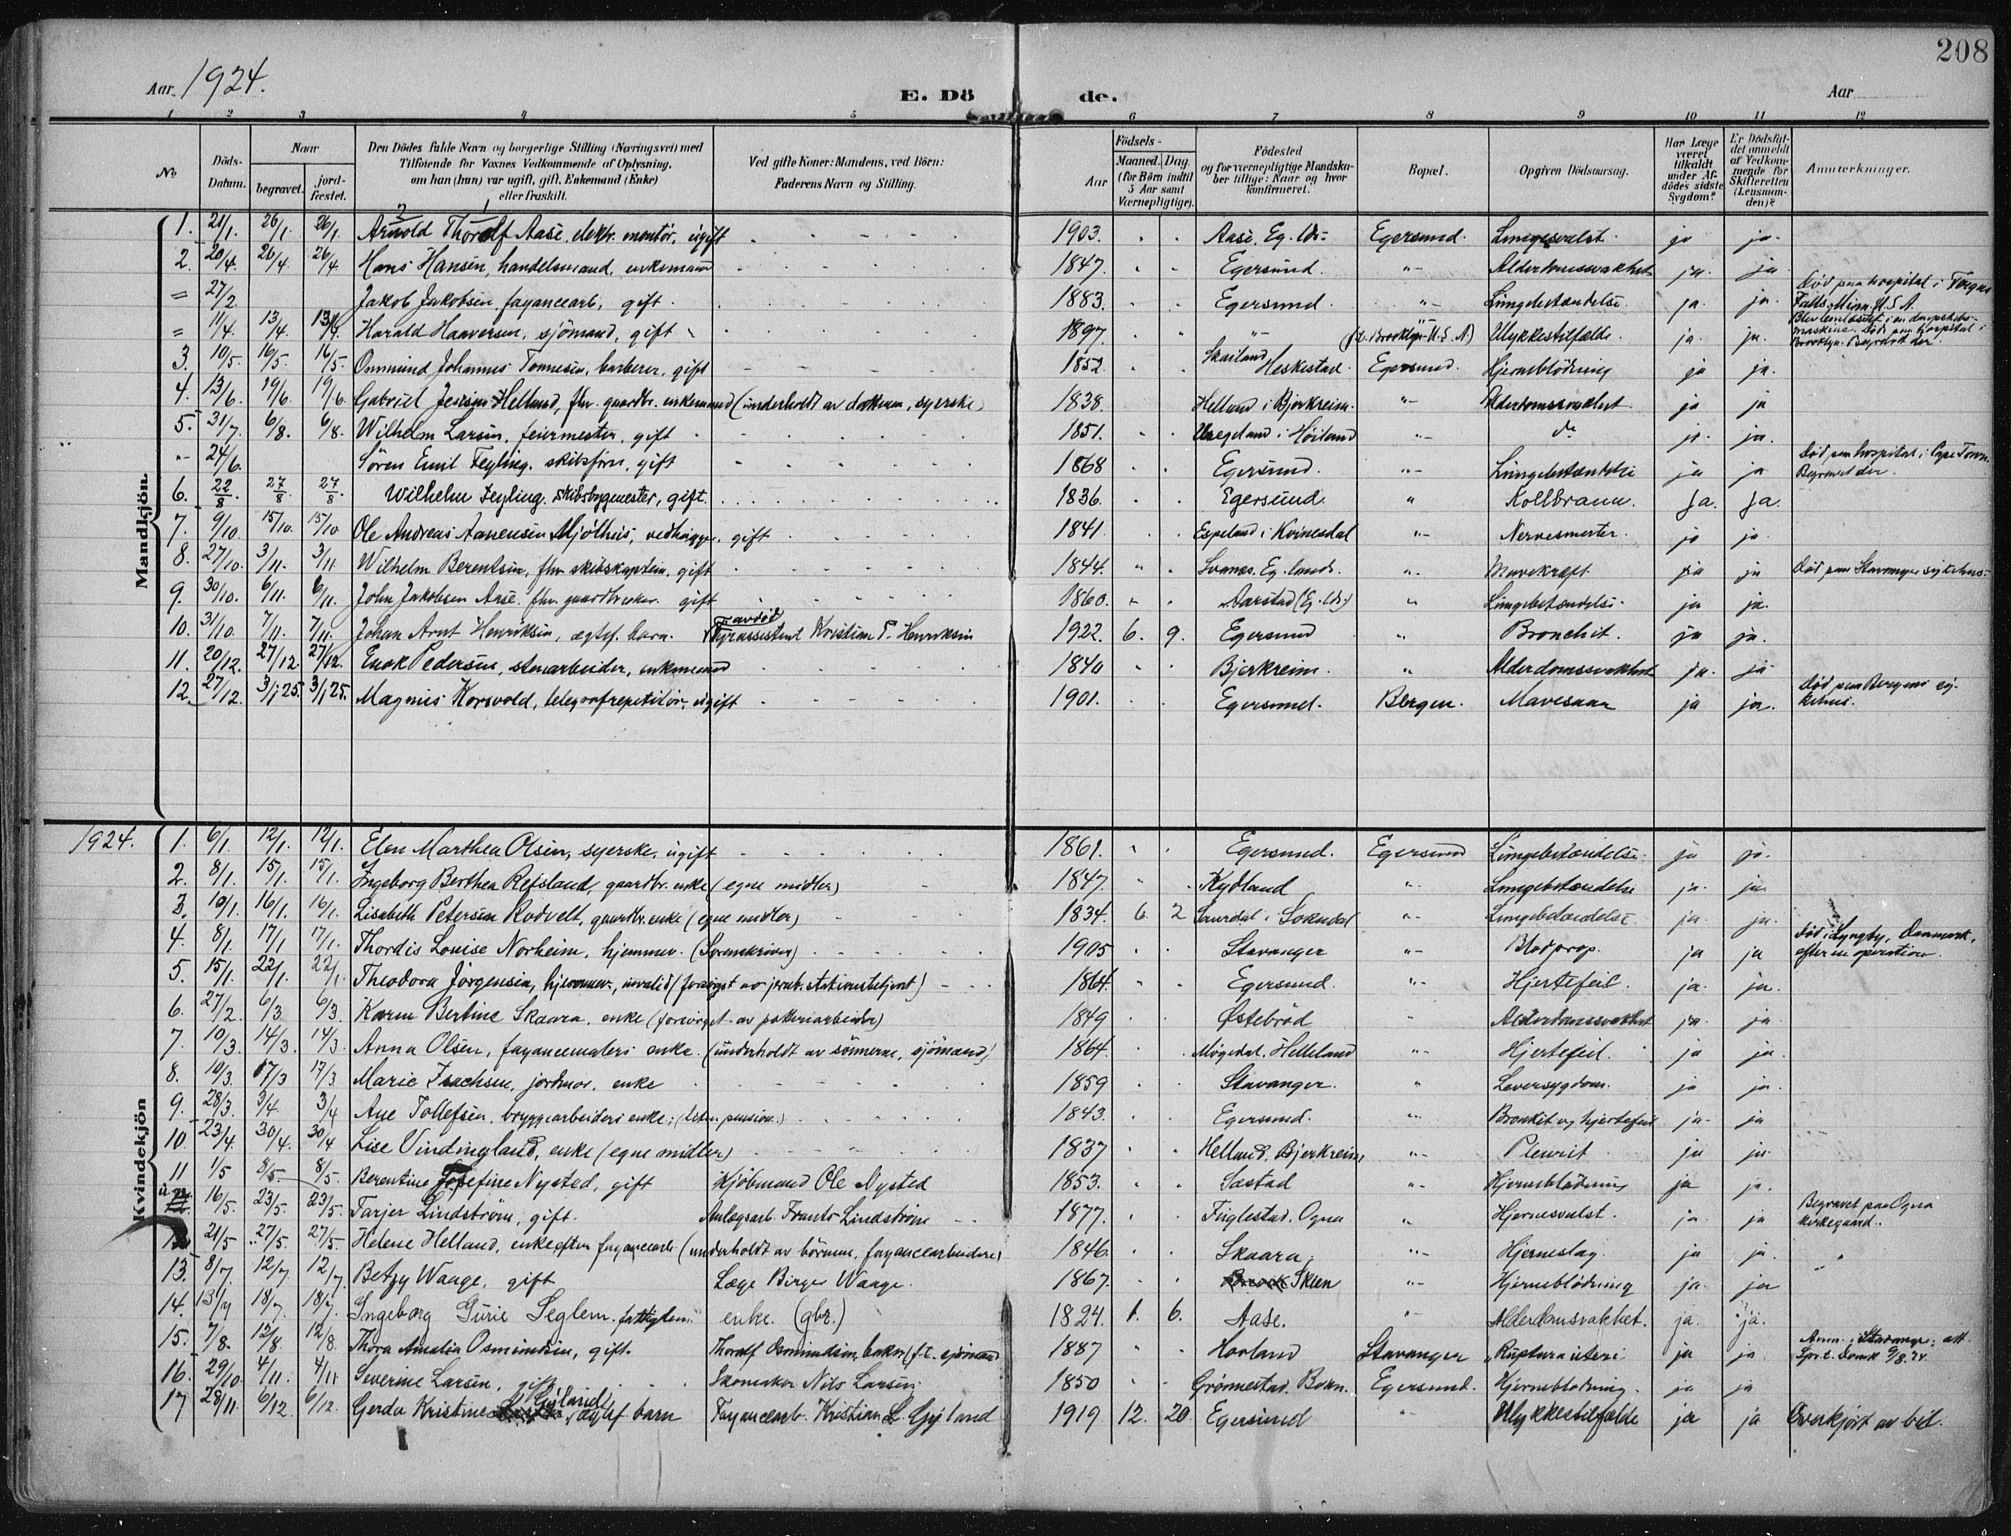 208
Aar 1924. E. Dö de. Aar
1 2 3 4 5 6 7 8 9 10 11 12
No. Döds-Datum. Naar begravet. jordfæstet. Den Dödes fulde Navn og borgerlige Stilling (Næringsvei) med Tilföiende for Voxnes Vedkommende af Oplysning, om han (hun) var ugift, gift, Enkemand (Enke) eller fraskilt. Ved gifte Koner: Mandens, ved Börn: Faderens Navn og Stilling. Födsels- Aar Maaned. Dag. (for Børn indtil 5 Aar samt Værnepligtige). Födested og for værnepligtige Mandskaber tillige: Naar og hvor konfirmeret. Bopæl. Opgiven Dödsaarsag. Har Læge været tilkaldt under Afdödes sidste Sygdom? Er Dödsfaldet anmeldt af Vedkommende for Skifteretten (Lensmanden)? Anmærkninger.
Mandkjön.
2 1
1. 21/1. 26/1 26/1. Arnold Thoralf Aase, elektr. montör, ugift 1903. Aase, Eg. lds. Egersund. Lungesvulst. ja ja.
2. 20/4. 26/4 26/4 Hans Hansen, handelsmand, enkemann 1847. Egersund. "- Alderdomssvakhet ja. ja
= 27/2. Jakob Jakobsen, fayancearb., gift. 1883. Egersund "- Lungebetændelse ja. ja. Död paa hospital i Fergus Falls, Minn. U.S.A.
= 11/4. 13/4. 13/4. Harald Haaversen, sjömand, gift 1897. "- (f.t. Brooklyn U.S.A) Ulykkestilfælde. ja. ja. Blev lemlæstet i en dampskibsmaskine. Död paa hospital i Brooklyn. Begravet der.
3. 10/5. 16/5 16/5. Ommund Johannes Tønnesen, barberer, gift 1852. Skailand Heskestad. Egersund. Hjerneblödning ja ja.
4. 13/6. 19/6. 19/6. Gabriel Jensen Helland, fhv. gaardbr. enkemand (underholdt av datteren, syerske) 1838. Helland i Bjerkreim. "- Alderdomssvakhet. ja ja
5. 31/7. 6/8. 6/8. Wilhelm Larsen, feiermester, gift 1851. i Höiland "- do ja. ja.
"- 24/6. Sören Emil Feyling, skibsförer, gift 1868 Egersund. "- Lungebetændelse ja ja Död paa hospital i Cape Town. Begravet der.
6. 22/8 27/8 27/8. Wilhelm Feyling, skibsbygmester, gift. 1836. Egersund. " Kollbrann. Ja. Ja.
7. 9/10. 15/10. 15/10 Ole Andreas Aanensen Mjølhus, vedhugger, gift 1841. Espeland i Kvinesdal "- Nervesmerter. ja ja.
8. 27/10. 3/11. 3/11. Wilhelm Berentsen, fhv. skibskaptein, gift 1844. Svanæs, Eg. lands. " Mavekræft. ja ja Död paa Stavanger sykehus.
9. 30/10. 6/11. 6/11. John Jakobsen Aase. fhv. gaardbruker. gift 1860. Aarstad (Eg. lds.) " Lungebetændelse. ja ja.
10. 31/10. 7/11. 7/11. Johan Arnt Henriksen, ægtef. barn. avdöd Fyrassistent Kristian T. Henriksen 1922. 6. 9. Egersund " Bronchit. ja ja.
11. 20/12. 27/12 27/12. Enok Pedersen, stenarbeider, enkemand 1840 Bjerkreim. " Alderdomssvakhet ja. ja
12. 27/12. 3/1 25. 3/1 25. Magnus Korsvold, telegrafrepetitör, ugift 1901. Egersund. Bergen. Mavesaar ja ja. Död paa Bergens sykehus.
1924. Kvindekjön
1. 6/1. 12/1. 12/1. Elen Marthea Olsen, syerske, ugift 1861. Egersund. Egersund Lungebetændelse. ja ja.
2. 8/1. 15/1. 15/1. Ingeborg Berthea Refsland, gaardbr. enke (egne midler) 1847. Kydland "- Lungebetændelse ja. ja.
3. 10/1. 16/1. 16/1. Lisabeth Petersen Rodvelt, gaardbr. enke (egne midler) 1834. 6. 2 Saurdal i Sokndal "- Lungebetændelse ja. ja.
4. 8/1. 17/1 17/1. Thordis Louise Norheim, hjemmev. (Sorenskriver) 1905 Stavanger "- Blodprop. ja ja Död i Lyngby, Danmark, efter en operation.
5. 15/1. 22/1. 22/1. Theodora Jörgensen, hjemmev., invalid (forsörget av jernb. stationsbetjent) 1864. Egersund. "- Hjertefeil. ja. ja.
6. 27/2. 6/3 6/3. Karen Bertine Skaara, enke (forsörget av potteriarbeider) 1849 Østebröd - Alderdomssvakhet ja. ja
7. 10/3. 14/3. 14/3. Anna Olsen, fayancemalers enke. (underholdt av sönnerne, sjömænd) 1864. Møgedal, Helleland "- Hjertefeil. ja ja.
8. 10/3. 17/3 17/3 Marie Isachsen, jordmor, enke 1859 Stavanger. " Leversygdom. ja ja.
9. 28/3. 3/4. 3/4 Ane Tollefsen, bryggearbeiders enke; (liten pension.) 1843. Egersund. "- Bronkit og hjertefeil ja. ja
10. 23/4. 30/4. 30/4 Lise Vindingland, enke (egne midler) 1837 Helland, Bjerkreim "- Plevrit. ja ja.
11 1/5 8/5. 8/5. Berentine Josefine Nysted, gift Kjöbmand Ole Nysted 1853. Sæstad "- Hjerneblödning ja ja.
16/5. 23/5. 23/5. Tarjer Lindström, gift. Anlægsarb. Frants Lindström 1877. Fuglestad, Ogna " Hjernesvulst. ja. ja Begravet paa Ogna kirkegaard.
12 21/5. 27/5. 27/5. Helene Helland, enke efter fayancearb. (underholdt av børnene, fayancearbeidere) 1846. Skaara "- Hjerneslag. ja ja. "
13. 8/7. 12/7 12/7. Betzy Waage, gift Læge Birger Waage. 1867. Skien "- Hjerneblödning ja. ja
14. 13/7 18/7. 18/7. Ingeborg Gurie Seglem. fattiglem. enke. (gbr.) 1824. 1. 6. Aase. "- Alderdomsvakhet. ja. ja.
15. 7/8. 12/8. 12/8. Thora Amalia Osmundsen, gift. Thoralf Osmundsen, baker (f.t. sjömand 1887 Havland Stavanger "Ruptura uteri ja ja Anm. i Stavanger; att. Spr. t. Domk 9/8.24.
16. 29/10. 4/11. 4/11 Severine Larsen, gift Skomaker Nils Larsen. 1850 Grönnestad, Bokn. Egersund. Hjerneblödning. ja ja
17 28/11. 6/12. 6/12. Gerda Kristine Gyland, ægtef barn Fayancearb. Kristian L. Gyland 1919 12. 20. Egersund " Ulykkestilfælde ja ja Overkjört av bil.